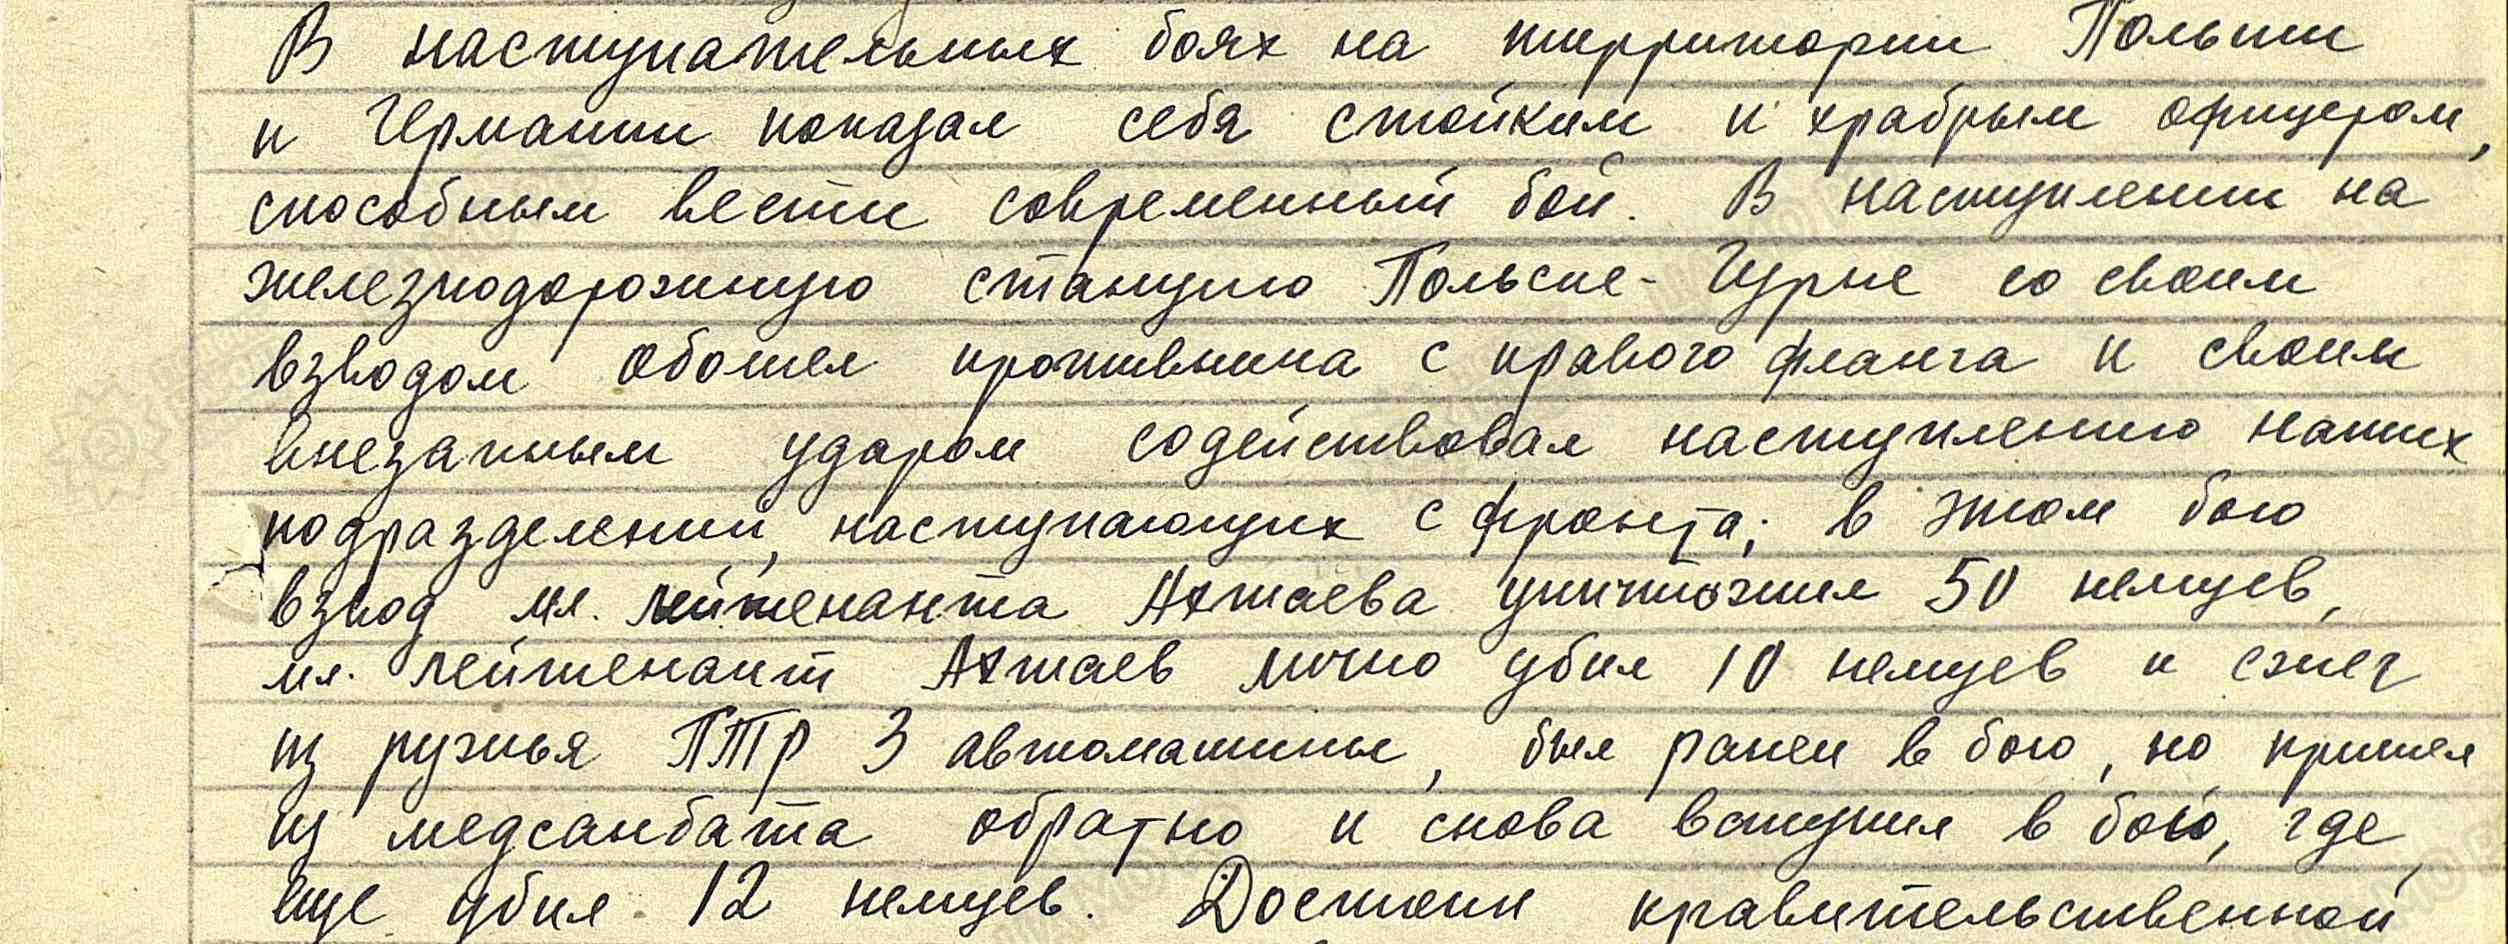 В наступательных боях на территории Польши
и Германии показал себя стойким и храбрым офицером,
способным вести современный бой. В наступлении на
железнодорожную станцию Польске-Гурне со своим
взводом обошел противника с правого фланга и своим
внезапным ударом содействовал наступлению наших
подразделений, наступающих с фронта; в этом бою
взвод мл. лейтенанта Ахтаева уничтожил 50 немцев,
мл. лейтенант Ахтаев лично убил 10 немцев и сжег
из ружья ПТР 3 автомашины, был ранен в бою, но пришел
из медсанбата обратно и снова вступил в бою, где
еще убил 12 немцев. Достоин правительственной